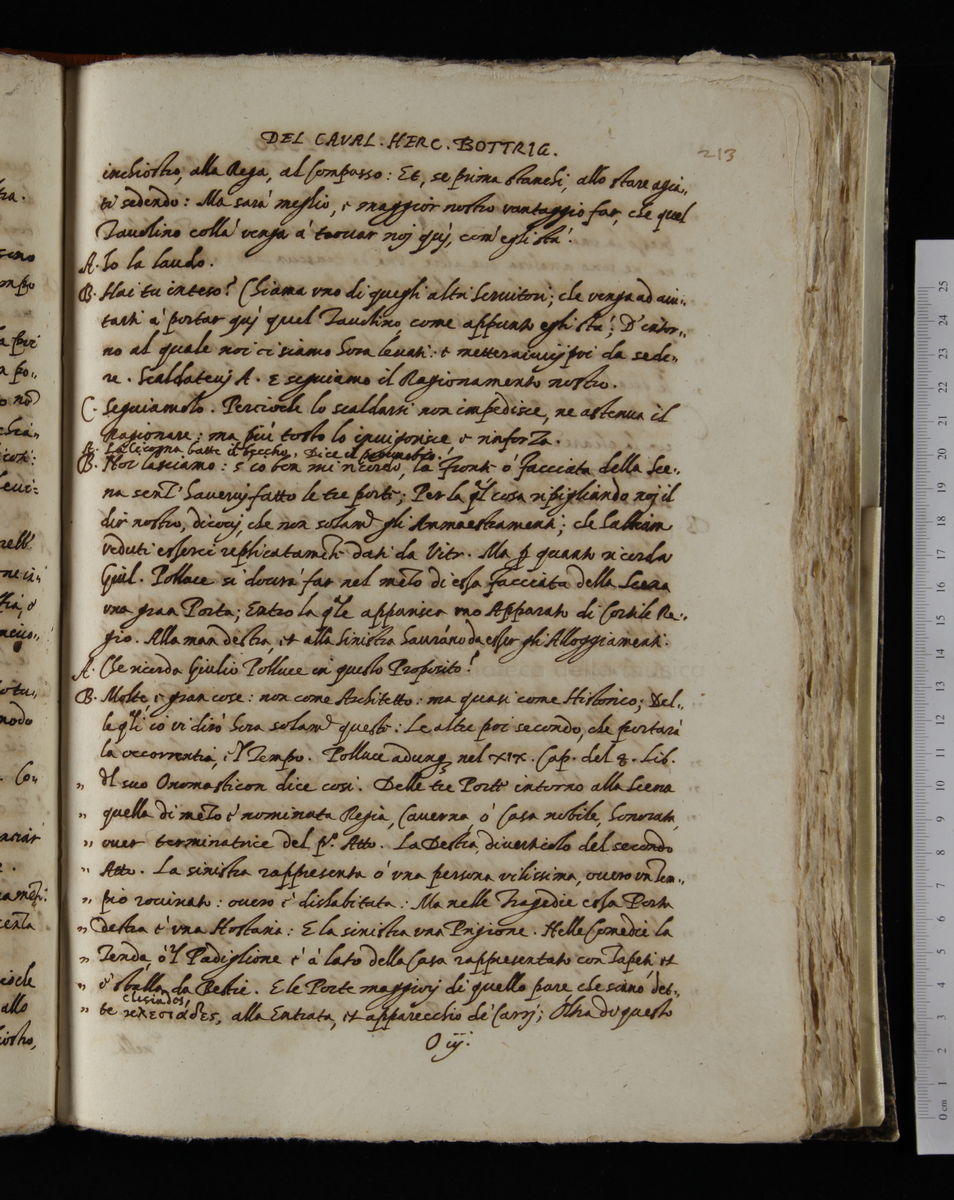 DEL CAVAL. HERC. BOTTRIG.
213
inchiostro, alla Rega, al Compasso: Et, se prima stanchi, allo stare agia„
ti sedendo: Ma sarà meglio, e maggior nostro vantaggio far, che quel
Tavolino collà venga à trovar noj quj, com' egli stà.
A. Io la laudo.
B. Hai tu inteso? Chiama uno di quegli altri Servitori; che venga ad aiu„
tarti à portar quj quel Tavolino, come appunto egli stà; D'intor„
no al quale noi ci siamo hora levati: e metteraivivj poi da sede„
re. Scaldatevj A. e seguiamo il Ragionamento nostro.
C. Seguiamolo. Percioche lo scaldarsi non impedisce, ne astenua il
ragionare: ma più tosto lo invigorisce e rinforza.
A. La Cicogna batte il beccho. Dice il
B. Hor lasciamo: s'io ben mi ricordo, la fronte ò facciata della Sce„
na senz' havervj fatto le tre porte; Per la ql cosa ripigliando noj il
dir nostro, dicovj, che non solam.e gli Ammaestramenti; che habbiam
veduti esserci replicatamte dati da Vitr. Ma p quanto ricorda
Giul. Polluce si dovrà far nel mezo di essa facciata della Scena
una gran Porta; Entro la qle apparisca uno Apparato di Cortile Re„
gio. Alla man destra, et alla sinistra havrano da esser gli Alloggiamenti.
A. Che ricorda Giulio Polluce in questo Proposito?
B. Molte, e gran cose: non come Architetto: ma quasi come Historico; Del„
le qli io vi dirò hora solam.e questo: Le altre poi secondo, che portarà
la occorrentia, e'l Tempo. Polluce adunq nel XIX. Cap. del 8. Lib.
„ dl suo Onomasticon dice così. Delle tre Porte intorno alla Scena
„ quella di mezo è nominata Regia, Caverna ò Casa nobile, honorata,
„ over terminatrice del p.o Atto. La Destra, diverticolo del secondo
„ Atto. La sinistra rappresenta ò una persona vilissima, overo un Tem„
„ pio rovinato: overo è dishabitata: Ma nelle Tragedie essa Porta
„ Destra è una Hostaria: E la sinistra una Prigione. Nelle Comedie la
„ Tenda, ò'l Padiglione è à lato della Casa rappresentato con Tapeti, et
„ è stalla da Bestie. E le Porte maggiorj di quello pare che siano det„
clisiades,
„ te κλεσιάδες, alla Entrata, et apparecchio de' Carrj; Oltra di questo
O iij.